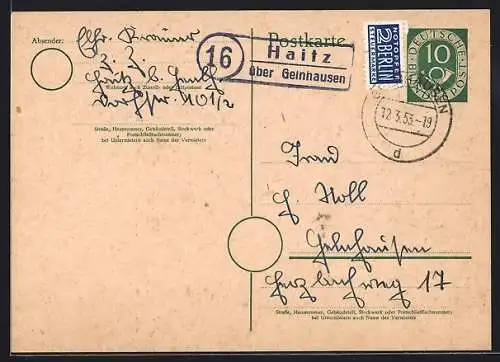 Absender:
Chr. Brauner
z. Z.
Haitz b. Gelnh.
Wohnort auch Zustell- oder Leitpostamt
Dorfstr. 101/2
Straße, Hausnummer, Gebäudeteil, Stockwerk oder
Postschließfachnummer;
bei Untermietern auch Name des Vermieters
Postkarte
16
Haitz
über Gelnhausen
NOTOPFER
2 BERLIN
STEUERMARKE
DEUTSCHE
10
12.3.53.-19
d
Frau
Holl
Gelnhausen
Herzbachweg 17
Straße, Hausnummer, Gebäudeteil, Stockwerk oder Postschließfachnummer;
bei Untermietern auch Name des Vermieters